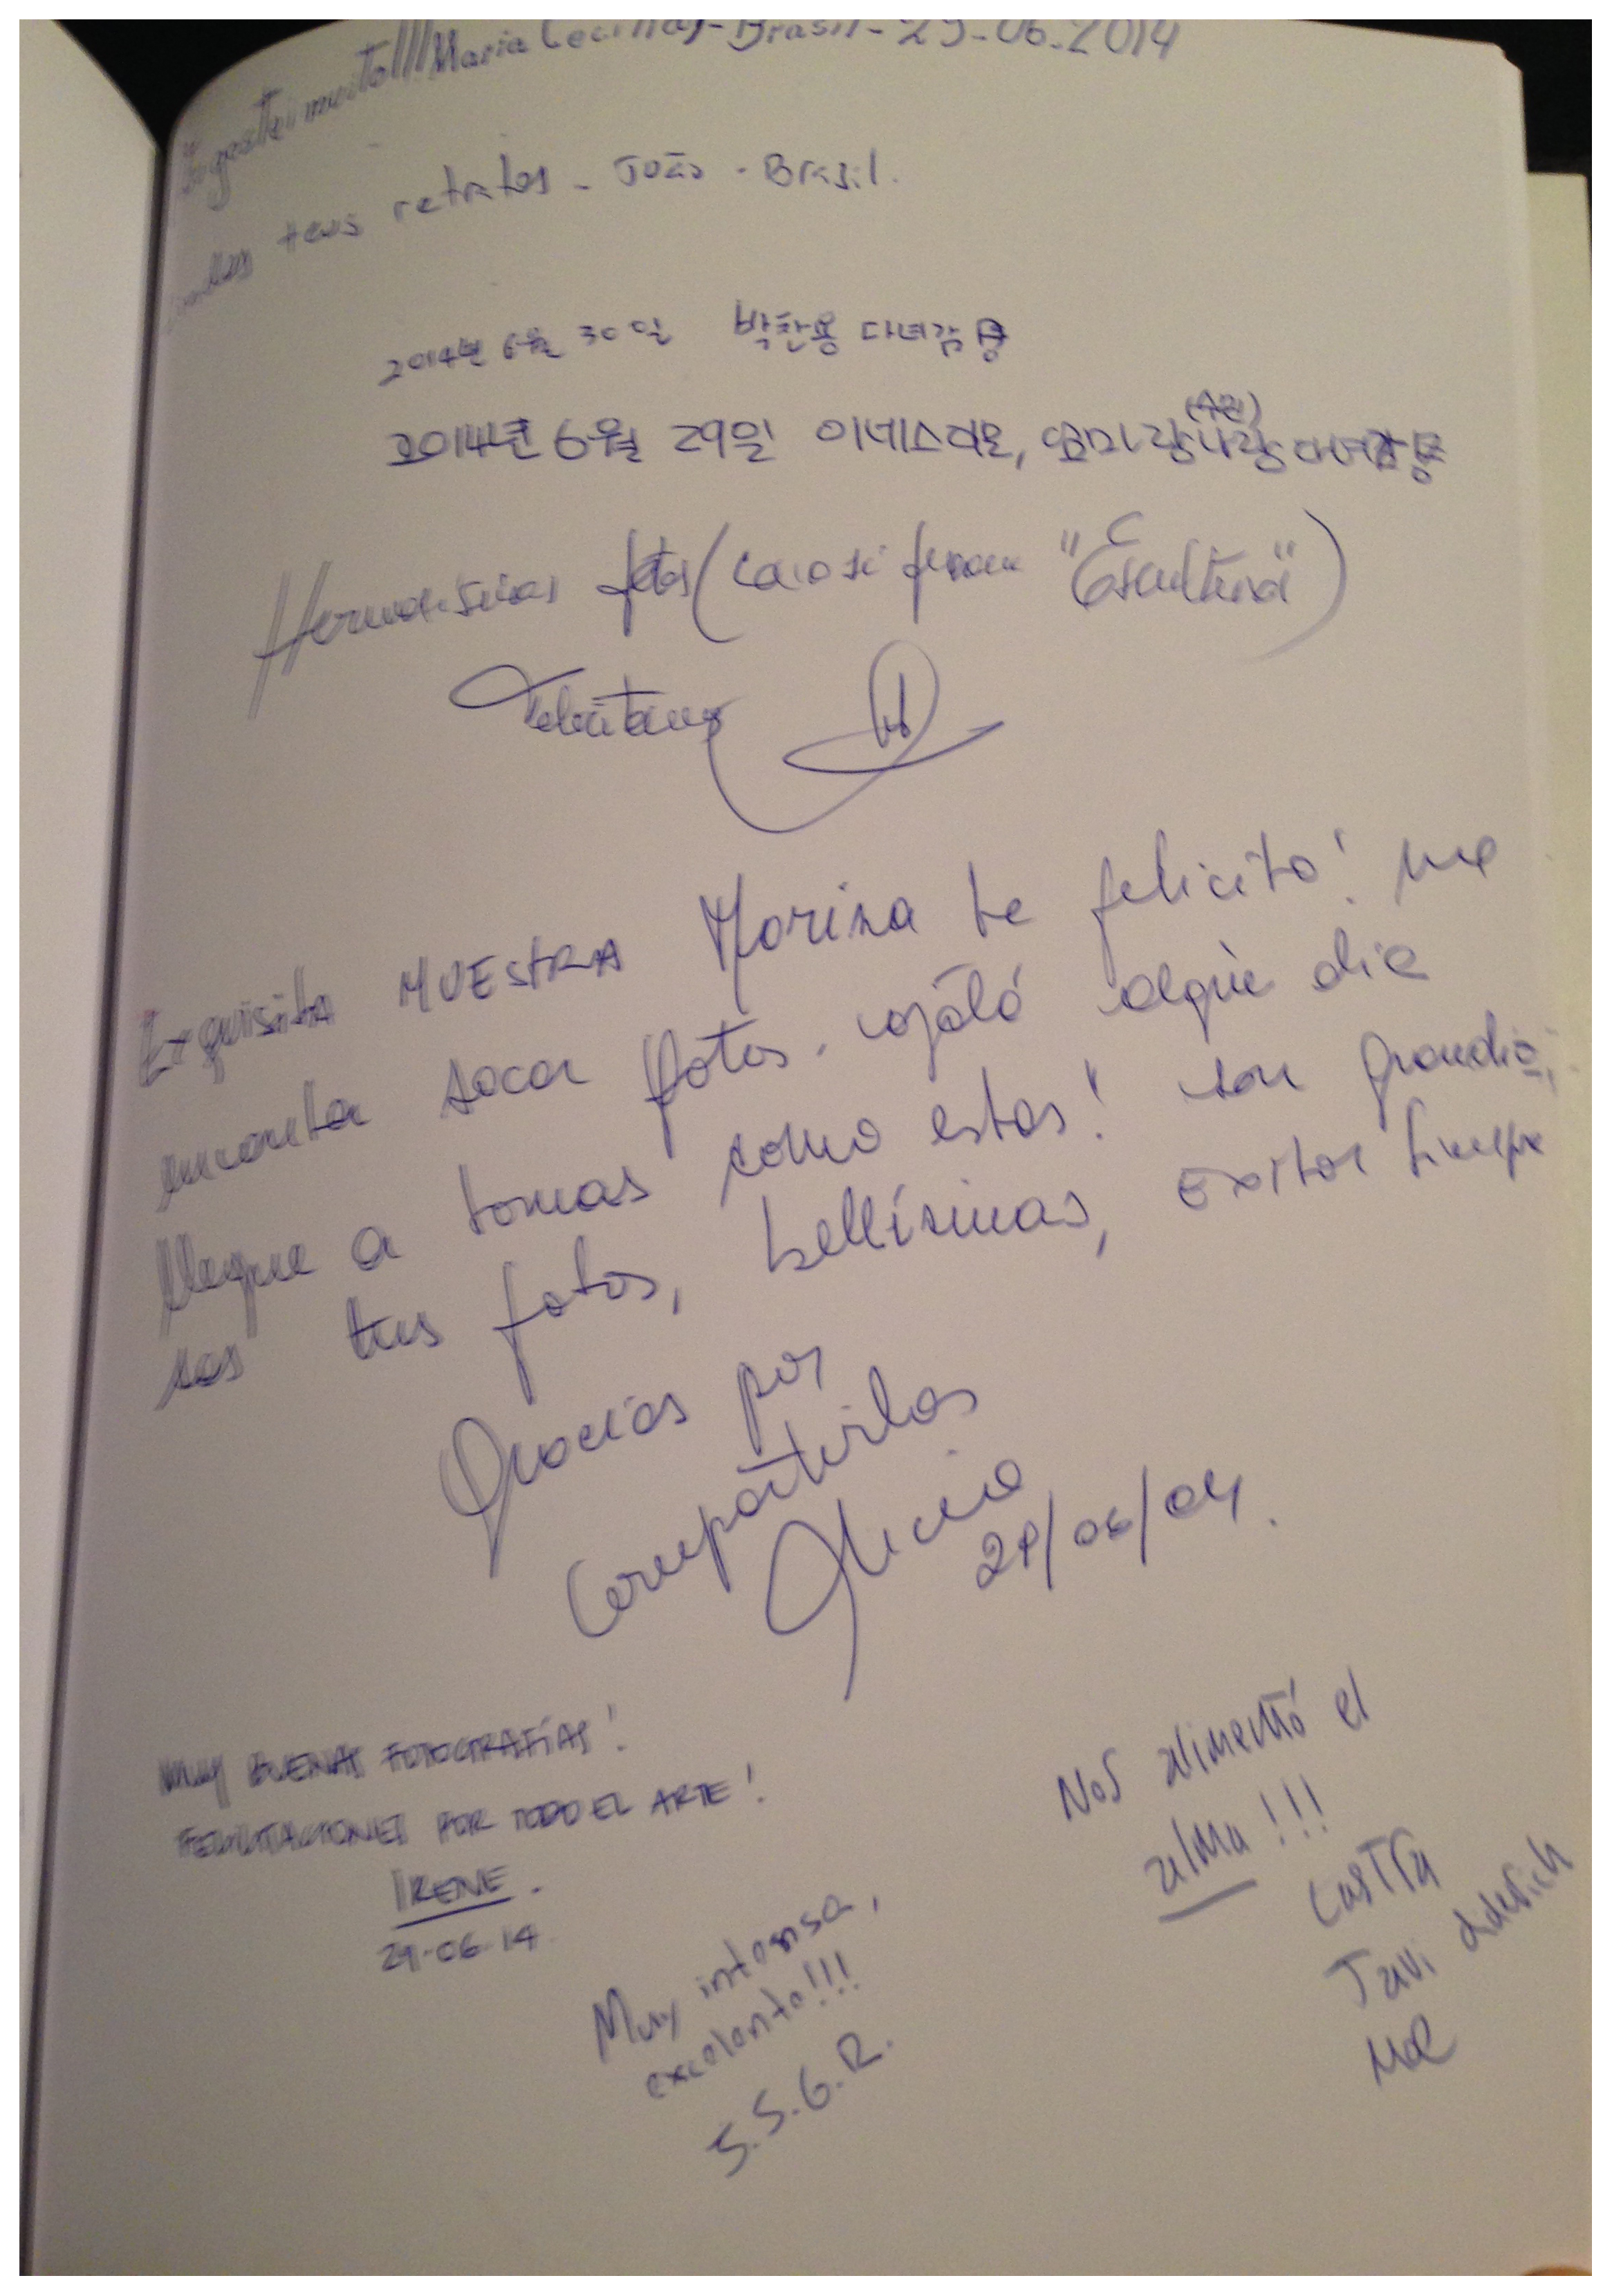 gostei muito!!! Maria Cecilia - Brasil - 29-06-2014
teus retratos - João - Brasil.
2014년 6월 30일 박찬용 다녀감
2014년 6월 29일 이네스라모, 엄마랑 나랑 다녀감
Hermosisimas fotos ( "Escultura")
Felicitaciones
Exquisita MUESTRA Marina te felicito! me
encanta sacar fotos. ojalá algún dia
llegue a tomas como estas! son grandio
sas tus fotos, bellísimas, exitos siempre
Gracias por
compartirlas
Alicia
29/06/04.
MUY BUENAS FOTOGRAFÍAS!
FELICITACIONES POR TODO EL ARTE!
IRENE.
29-06-14.
Nos alimentó el
alma!!!
Castra
Javi
Muy intensa,
excelente!!!
S.S.G.R.